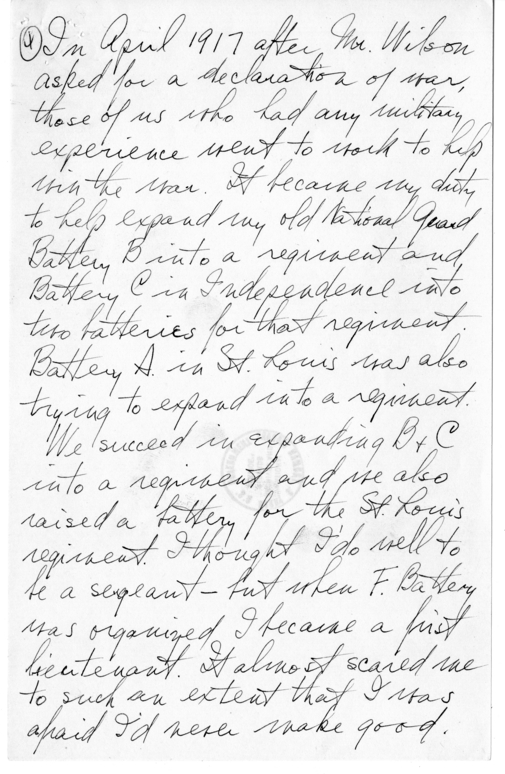 ④ In April 1917 after Mr. Wilson
asked for a declaration of war,
those of us who had any military
experience went to work to help
win the war. It became my duty
to help expand my old National Guard
Battery B into a regiment and
Battery C in Independence into
two batteries for that regiment.
Battery A. in St. Louis was also
trying to expand into a regiment.
We succeed in expanding B + C
into a regiment and we also
raised a battery for the St. Louis
regiment. I thought I'd do well to
be a sergeant – but when F. Battery
was organized I became a first
lieutenant. It almost scared me
to such an extent that I was
afraid I'd never make good.